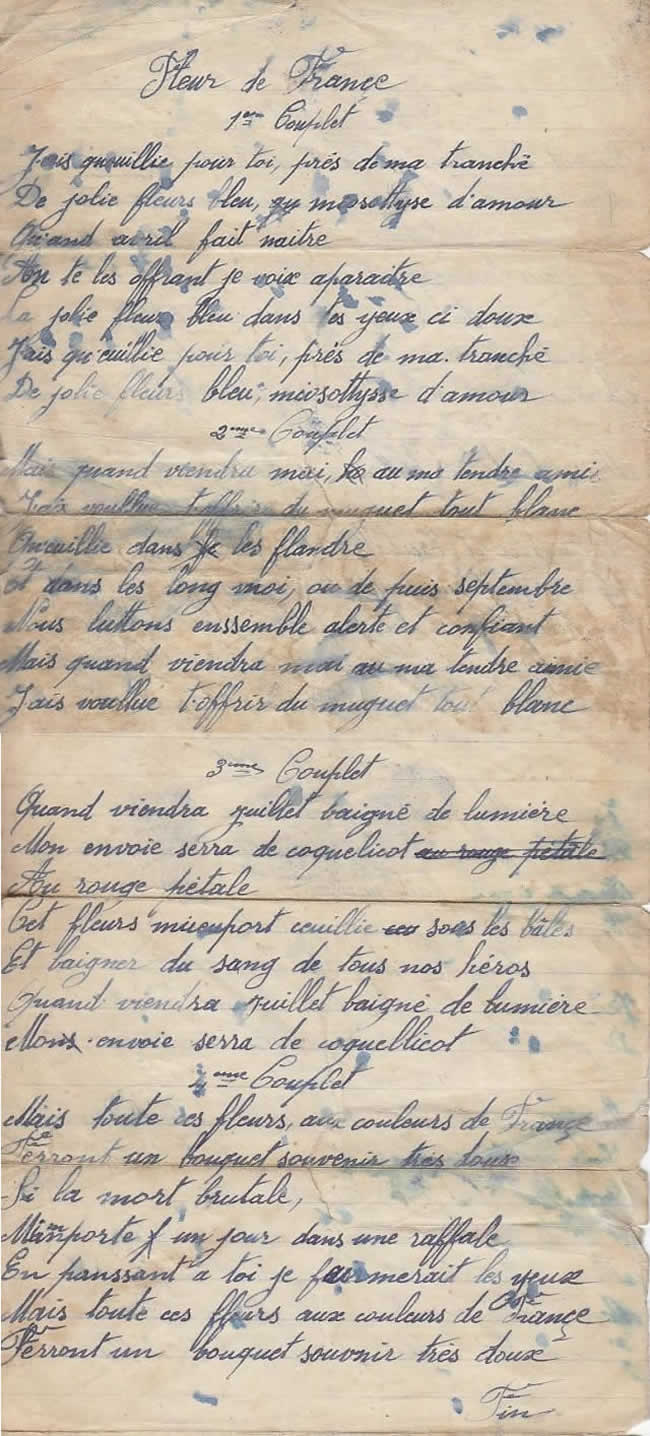 Fleur de France
1er Couplet
J'ais queuillie pour toi, prés de ma tranché
De jolie fleurs bleu, miosottyse d'amour
Quand avril fait naitre
An te les offrant je voix aparaitre
La jolie fleur bleu dans tes yeux ci doux
J'ais qu'euillie pour toi, prés de ma tranché
De jolie fleurs bleu, miosottysse d'amour
2eme Couplet
Mais quand viendra mai, au ma tendre amie
J'aix voullue t'offrir du muguet tout blanc
Queuillie dans les flandre
Et dans les long moi, ou de puis septembre
Nous luttons enssemble alerte et confiant
Mais quand viendra mai au ma tendre aimie
J'ais voullue t'offrir du muguet tout blanc
3eme Couplet
Quand viendra juillet baigné de lumiére
Mon envoie serra de coquelicot au rouge pétale
Au rouge pétale
Cet fleurs ceuillie sous les bâles
Et baigner du sang de tous nos héros
Quand viendra juillet baigné de lumiére
Mons envoie serra de coquellicot
4eme Couplet
Mais toute ces fleurs, aux couleurs de France
Ferront un bouquet souvenir trés doux
Si la mort brutale,
M'importe un jour dans une raffale
En panssant a toi je fairmerait les yeux
Mais toute ces fleurs aux couleurs de France
Ferront un bouquet souvnir trés doux
Fin